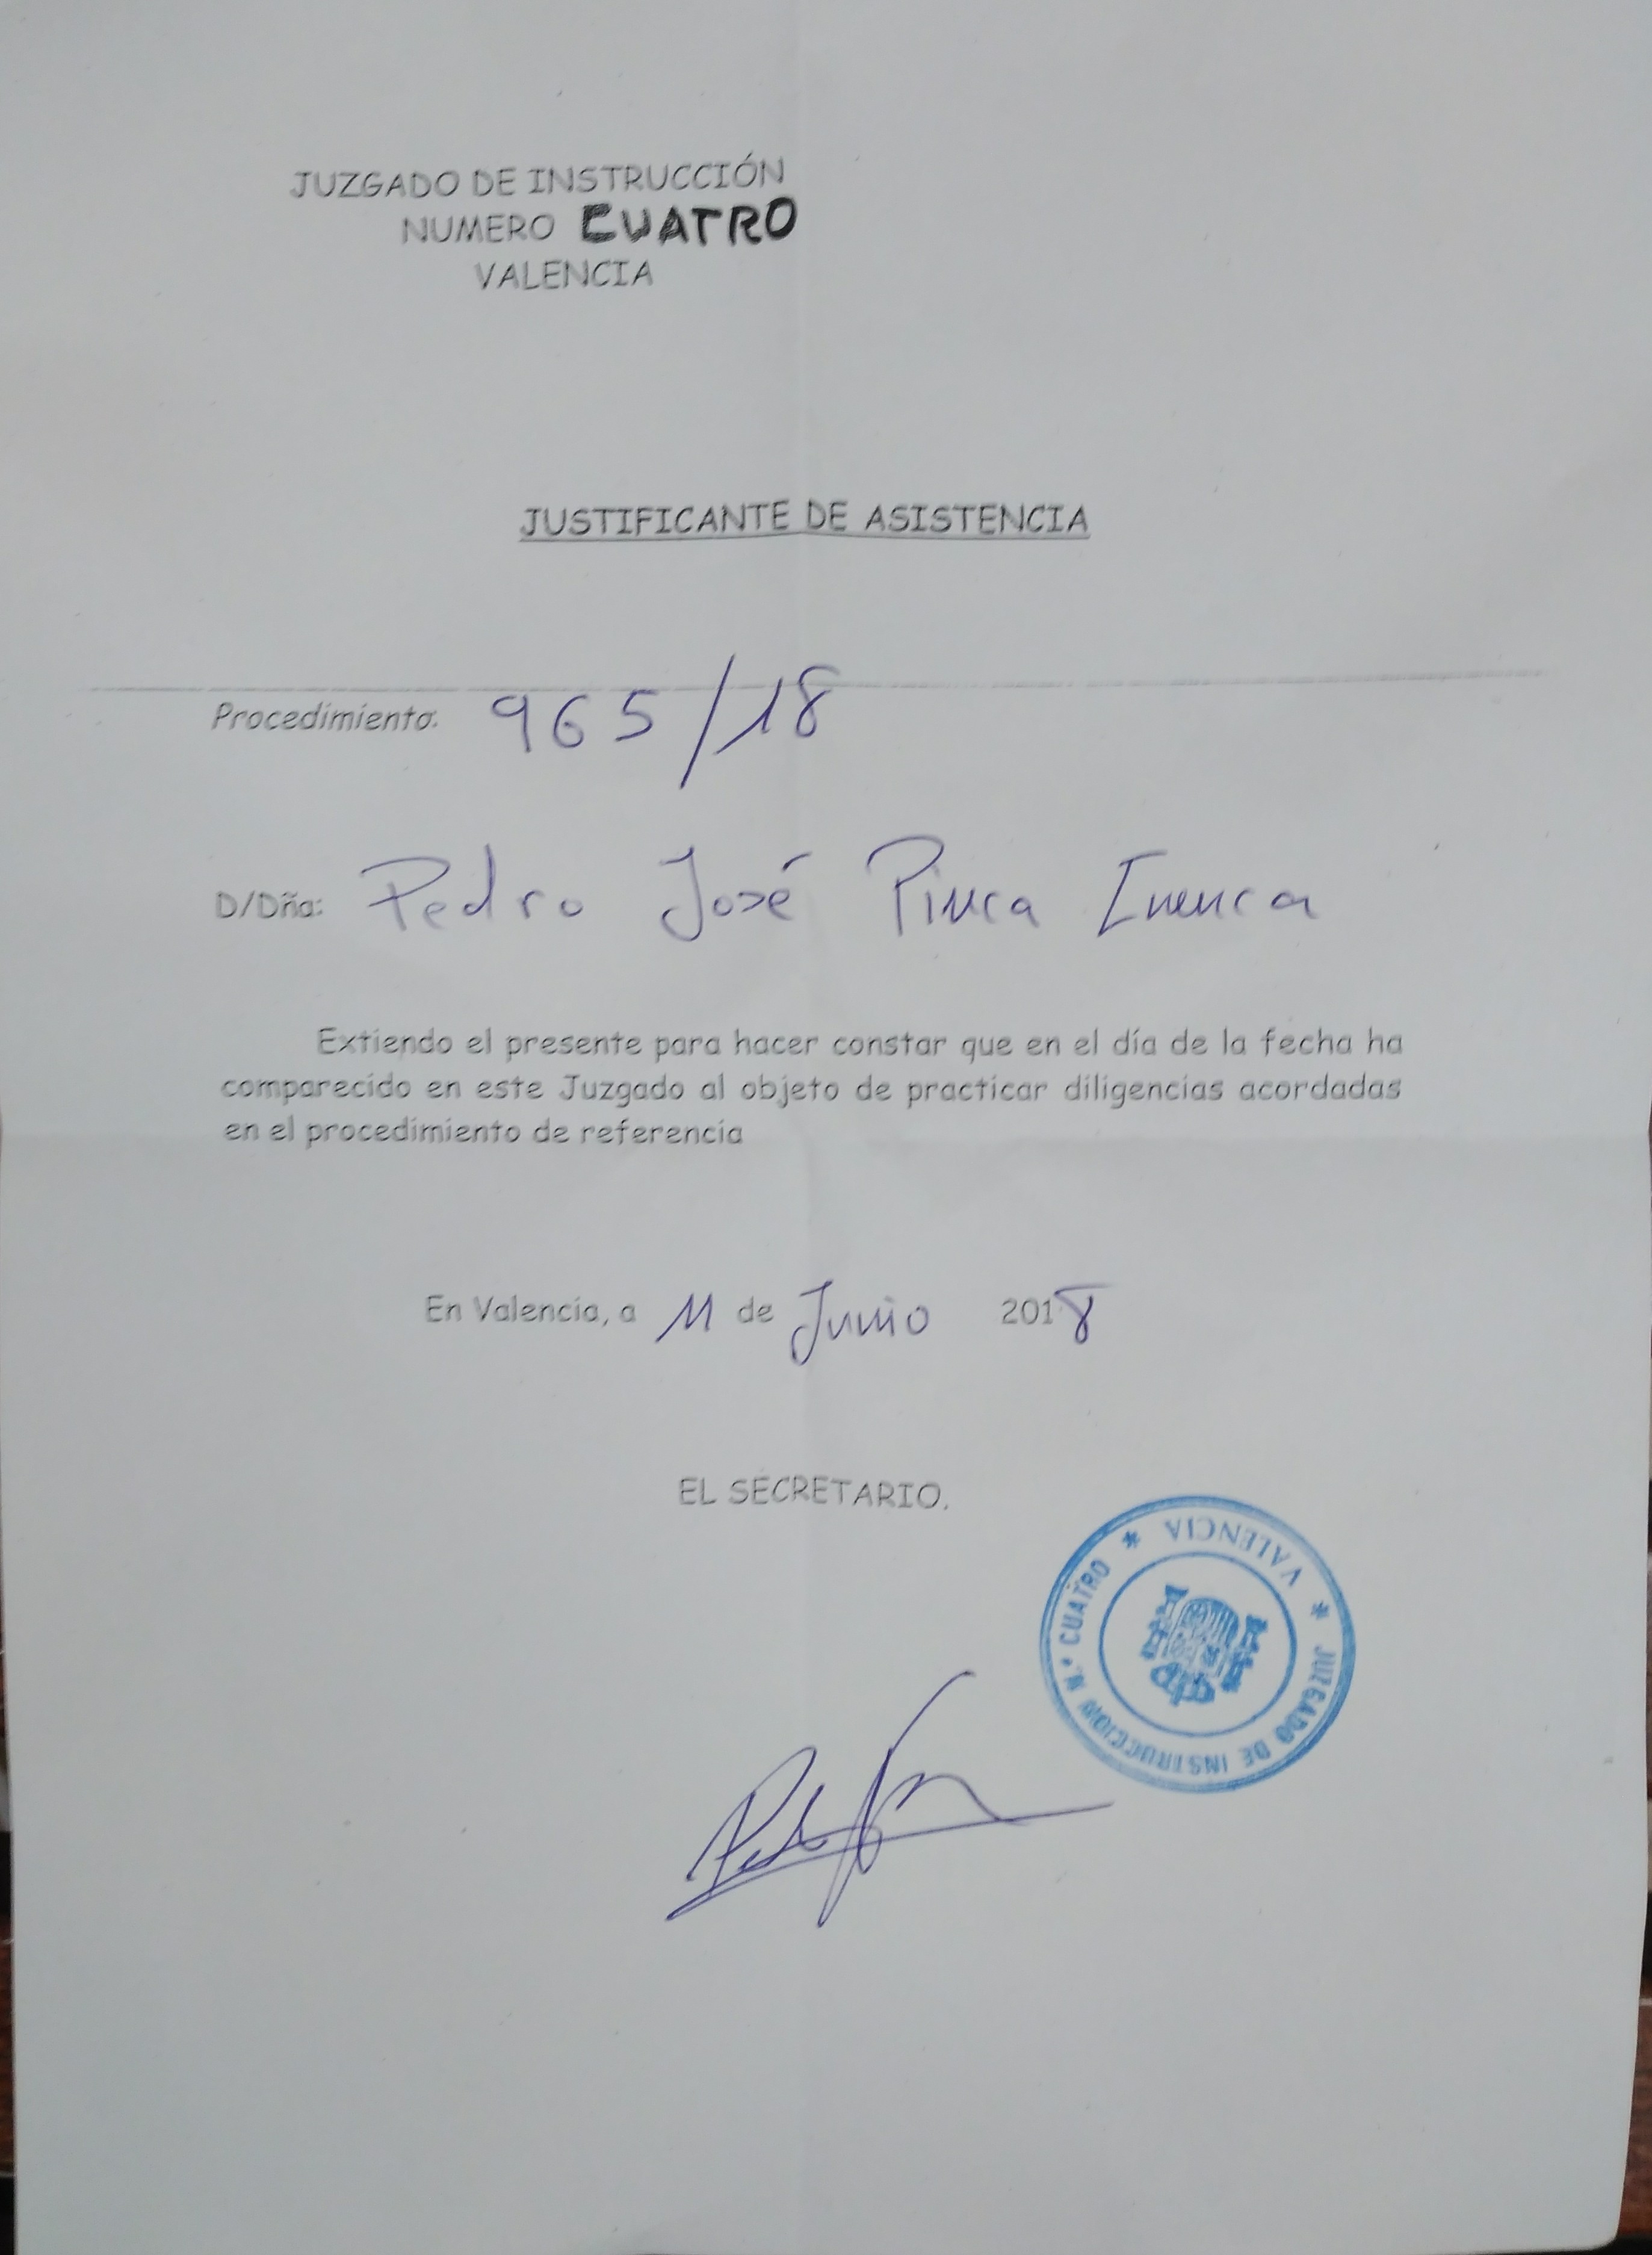 JUZGADO DE INSTRUCCIÓN
NUMERO CUATRO
VALENCIA
JUSTIFICANTE DE ASISTENCIA
Procedimiento: 965/18
D/Dña: Pedro José
Extiendo el presente para hacer constar que en el día de la fecha ha
comparecido en este Juzgado al objeto de practicar diligencias acordadas
en el procedimiento de referencia
En Valencia, a 11 de Junio 2018
EL SECRETARIO.
* JUZGADO DE INSTRUCCION N.º CUATRO *
VALENCIA